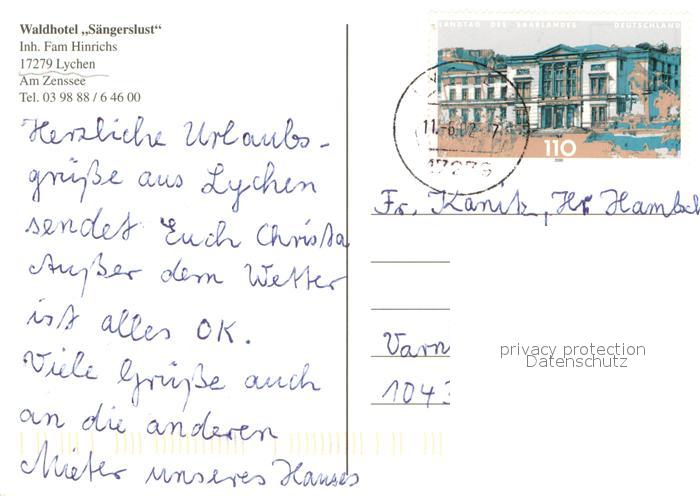 Waldhotel „Sängerslust“
Inh. Fam Hinrichs
17279 Lychen
Am Zenssee
Tel. 03 98 88 / 6 46 00
Herzliche Urlaubs-
grüße aus Lychen
sendet Euch Christa
Außer dem Wetter
ist alles OK.
Viele Grüße auch
an die anderen
Mieter unseres Hauses
LANDTAG DES SAARLANDES DEUTSCHLAND
110
2000
17279
Fr. Kanitz, Hr Hambsch
Varn
1043
privacy protection
Datenschutz